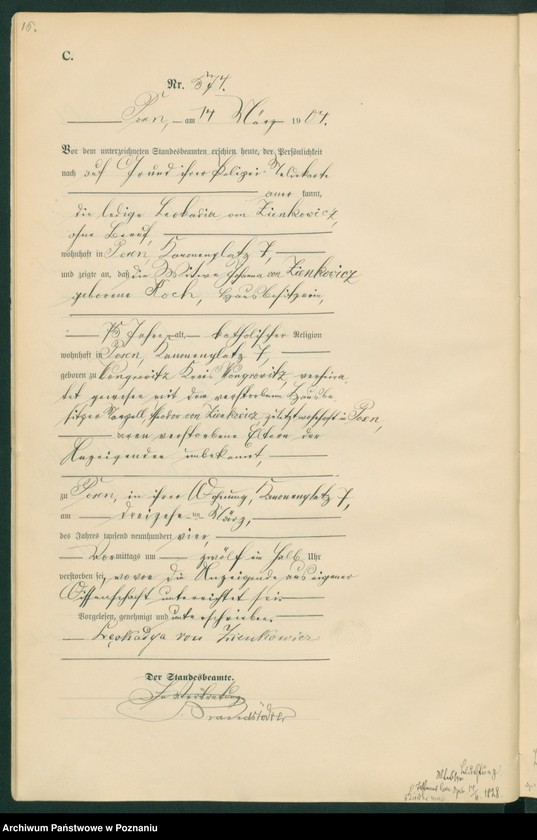 16.
C.
Nr. 574.
Posen, am 14 März 1904.
Vor dem unterzeichneten Standesbeamten erschien heute, der Persönlichkeit
nach auf Grund ihrer Polizei-Meldekarte
aner kannt,
die ledige Leokadia von Zienkowicz,
ohne Beruf,
wohnhaft in Posen, Kanonenplatz 7,
und zeigte an, daß die Witwe Johanna von Zienkowicz
geborene Koch, Hausbesitzerin,
75 Jahre alt, katholischer Religion
wohnhaft in Posen, Kanonenplatz 7,
geboren zu Wongrowitz Kreis Wongrowitz, verheira-
tet gewesen mit dem verstorbenen Hausbe-
sitzer Theodor von Zienkowicz, zuletzt wohnhaft in Posen,
verstorbene Eltern der
Anzeigenden unbekannt,
zu Posen, in ihrer Wohnung, Kanonenplatz 7,
am dreizehnten März,
des Jahres tausend neunhundert vier,
Vormittags um zwölf ein halb Uhr
verstorben sei, wovon die Anzeigende aus eigener
Wissenschaft unterrichtet sei.
Vorgelesen, genehmigt und unterschrieben.
Leokadya von Zienkowicz
Der Standesbeamte.
In Vertretung
Brandstädter
1828
Archiwum Państwowe w Poznaniu